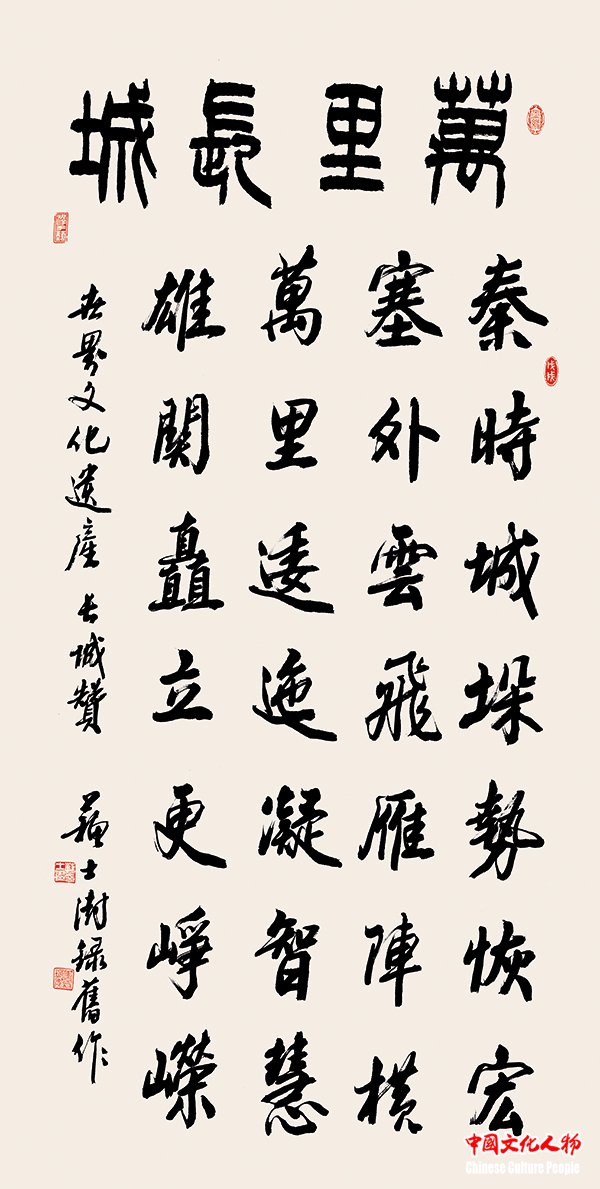 萬里長城
秦時城垛勢恢宏
塞外雲飛雁陣橫
萬里逶迤凝智慧
雄關矗立更崢嶸
世界文化遺產長城贊 蘇士澍録舊作
戊戌
中國文化人物
Chinese Culture People